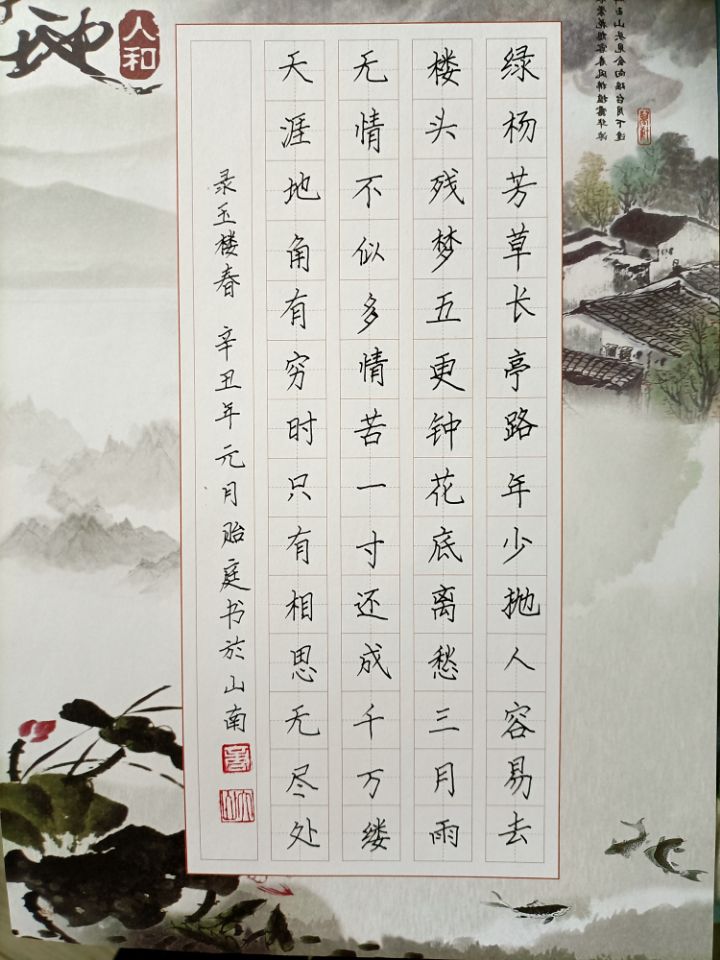 绿杨芳草长亭路年少抛人容易去
楼头残梦五更钟花底离愁三月雨
无情不似多情苦一寸还成千万缕
天涯地角有穷时只有相思无尽处
录玉楼春 辛丑年元月贻庭书於山南
地
人和